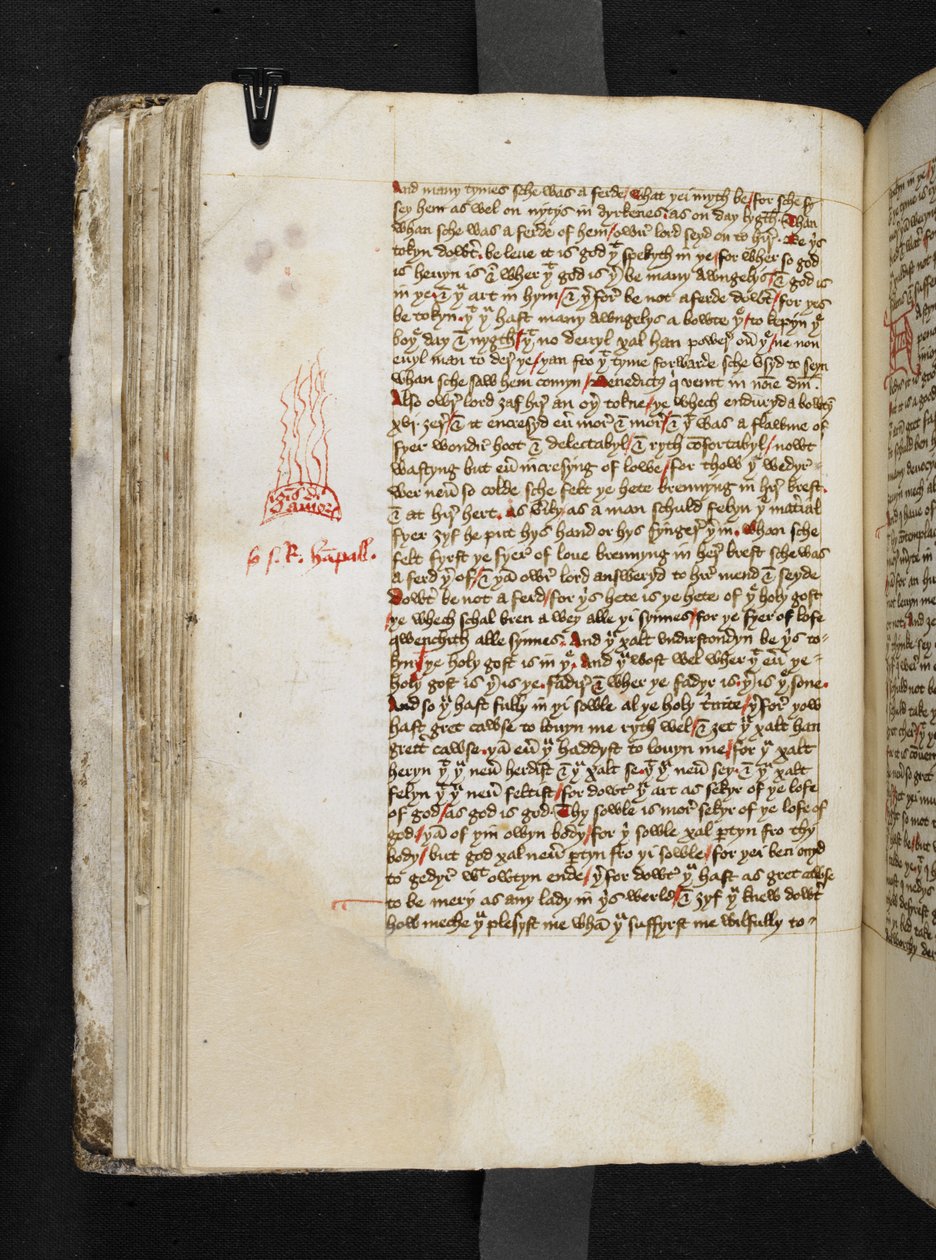 And many tymes sche was a ferde / what yei myth be / for sche sy
sey hem as wel on nytys in dyrkenes. as on day lygth. Than
whan sche was a ferde of hem / owr̛ lord seyd on to hir̛. Be yˢ
tokyn dowtr̛. beleue it is god yᵗ spekyth in ye / for wher so god
is heuyn is & wher yᵗ god is yʳ be many Awngelys / & god is
in ye. & yᵘ art in hym / & yʳfor̛ be not aferde dowtr̛ / for yes
be tokyn. yᵗ yᵘ hast many Awngelys a bowte yᵉ / to kepyn yᵉ
boy day & nygth / yᵗ no deuyl xal han power̛ oư yᵉ / ne non
euyl man to der̛ ye / yan fro yᵗ tyme forwarde sche vsyd to seyn
whan sche saw hem comyn / Benedictꝰ q̛ venit in nōīe dn̄i.
Also owr̛ lord ȝaf hir̛ an oyr̛ tokne / ye whech enduryd a bowtyn
xvj ȝer̛ / & it encresyd eư mor̛ & mor̛ / & yᵗ was a flawme of
fyer wondir̛ hoot & delectabyl / & ryth cōfortabyl / nowt
wastyng but eư incresyng of lowe / for thow yᵉ wedyr =
wer neư so colde sche felt ye hete brennyng in hir̛ brest.
& at hir̛ hert. as v̛ily as a man schuld felyn yᵉ mat̛ial
fyer ȝyf he put hys hand or hys fynger̛ yʳin. Whan sche
felt fyrst ye fyer̛ of loue brennyng in her̛ brest sche was
a ferd yʳof / & yā owr̛ lord answeryd to hir̛ mend & seyde
Dowtr̛ be not a ferd / for yˢ hete is ye hete of yᵉ holy gost
/ ye whech schal bren a wey alle yi synnes / for ye fyer of lofe
qwenchith alle synnes. And yᵘ xalt vndirstondyn be yˢ to=
kyn / ye holy gost is in yᵉ. And yᵘ wost wel wher yᵗ eư ye =
holy gost is yʳ is ye. fadir̛ & wher ye fadyr is. yʳ is yᵉ sone.
And so yᵘ hast fully in yi sowle al ye holy t̛nite / yʳfor̛ yow
hast gret cawse to louyn me ryth wel / & ȝet yᵘ xalt han
grettr̛ cawse. yā eư yᵘ haddyst to louyn me / for yᵘ xalt
heryn yᵗ yᵘ neư herdist & yᵘ xalt se. yᵗ yᵘ neư sey. & yᵘ xalt
felyn yᵗ yᵘ neư feltist / for dowtr̛ yᵘ art as sekyr of ye lofe
of god / as god is god. Thy sowle is mor̛ sekyr of ye lofe of
god / yā of yin̄ owyn body / for yi sowle xal ꝑtyn fro thy
body / but god xal neư ꝑtyn fro yi sowle / for yei ben onyd
to gedyr̛ wᵗ owtyn ende / yʳfor dowtr̛ yᵘ hast as gret cawse
to be mery as any lady in yˢ werld / & ȝyf yᵘ knew dowtr̛
how meche yᵘ plesyst me whā yᵘ suffyrst me wilfully to =
ignis di
amor̛
s. R. Hāpall.